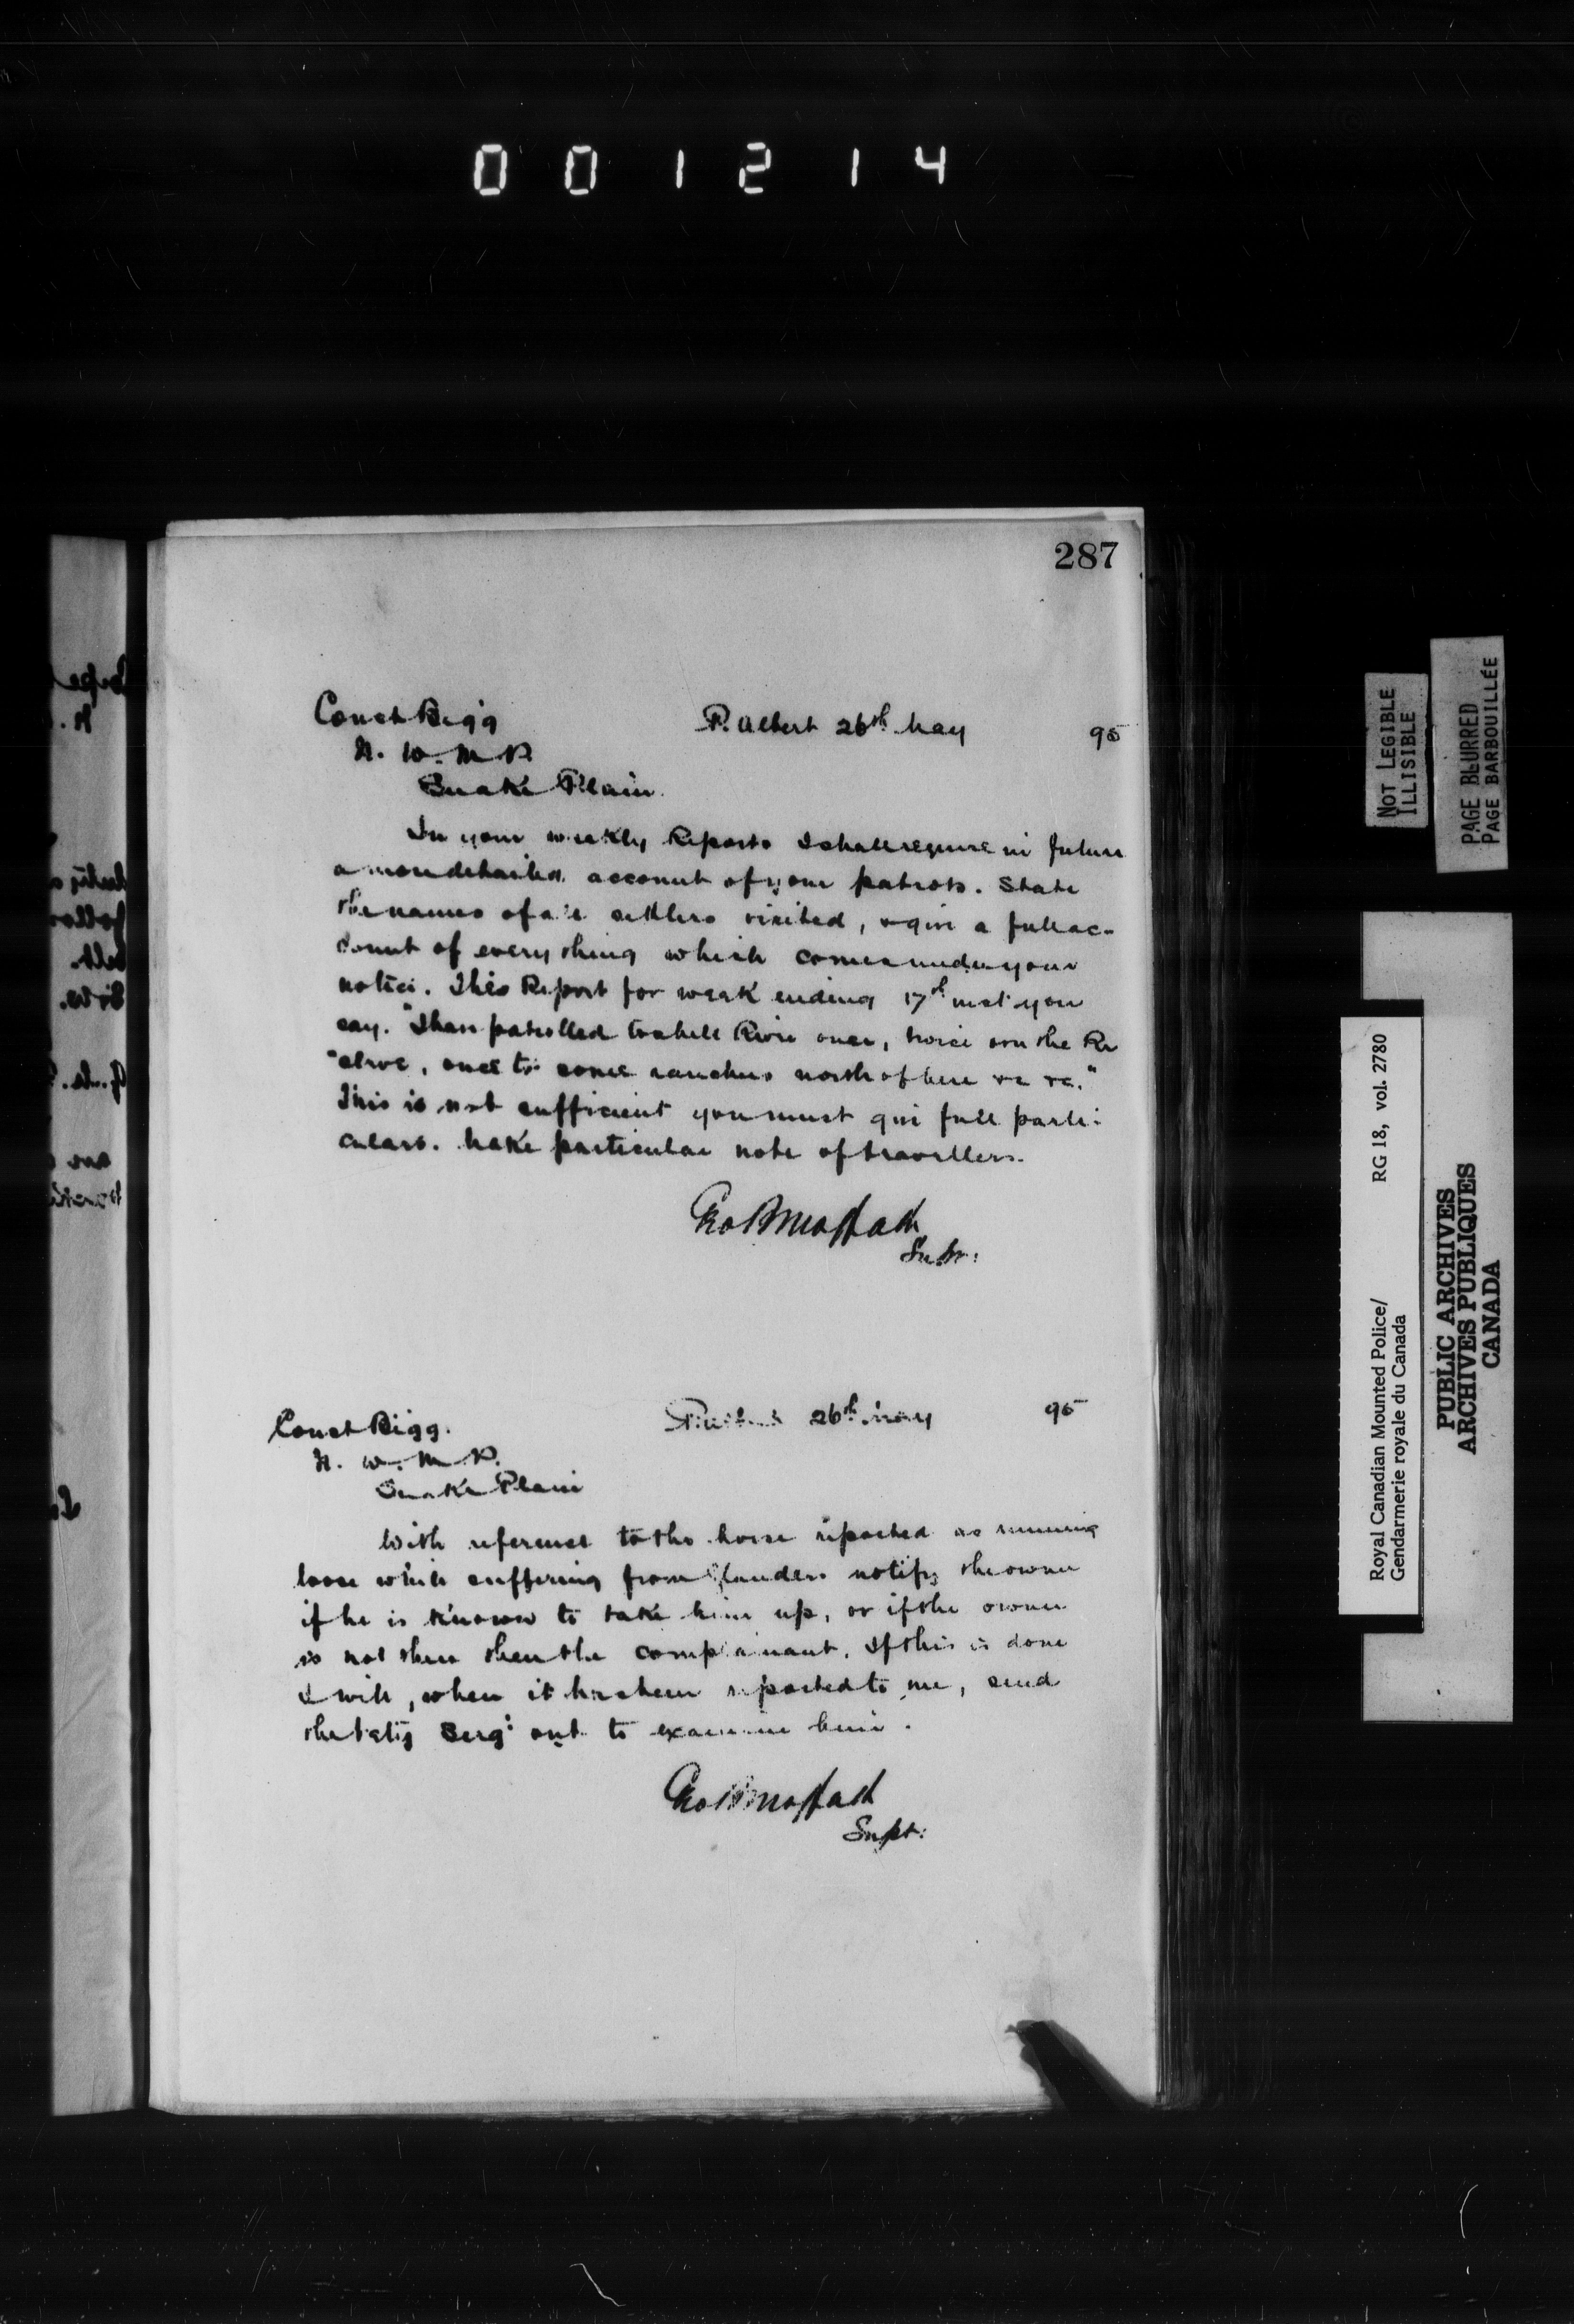 001214
287
Const Bigg
N. W. M. P.
Snake Plain.
P. Albert 26th May 95
In your weekly Reports I shall require in future
a more detailed account of your patrols. State
the names of all settlers visited, & give a full ac-
count of everything which comes under your
notice. This Report for week ending 17th inst you
say. "I have patrolled to Shell River once, twice on the Re
"serve, once to some ranchers north of here &c &c."
This is not sufficient you must give full parti-
culars. Make particular note of travellers.
Supt.
Const Bigg.
N. W. M. P.
Snake Plain
P. Albert 26th May 95
With reference to the horse reported as running
loose while suffering from Glanders notify the owner
if he is known to take him up, or if the owner
is not then the complainant. If this is done
I will, when it has been reported to me, send
the Vety Sergt out to examine him.
Supt.
NOT LEGIBLE
ILLISIBLE
PAGE BLURRED
PAGE BARBOUILLÉE
Royal Canadian Mounted Police/ RG 18, vol. 2780
Gendarmerie royale du Canada
PUBLIC ARCHIVES
ARCHIVES PUBLIQUES
CANADA